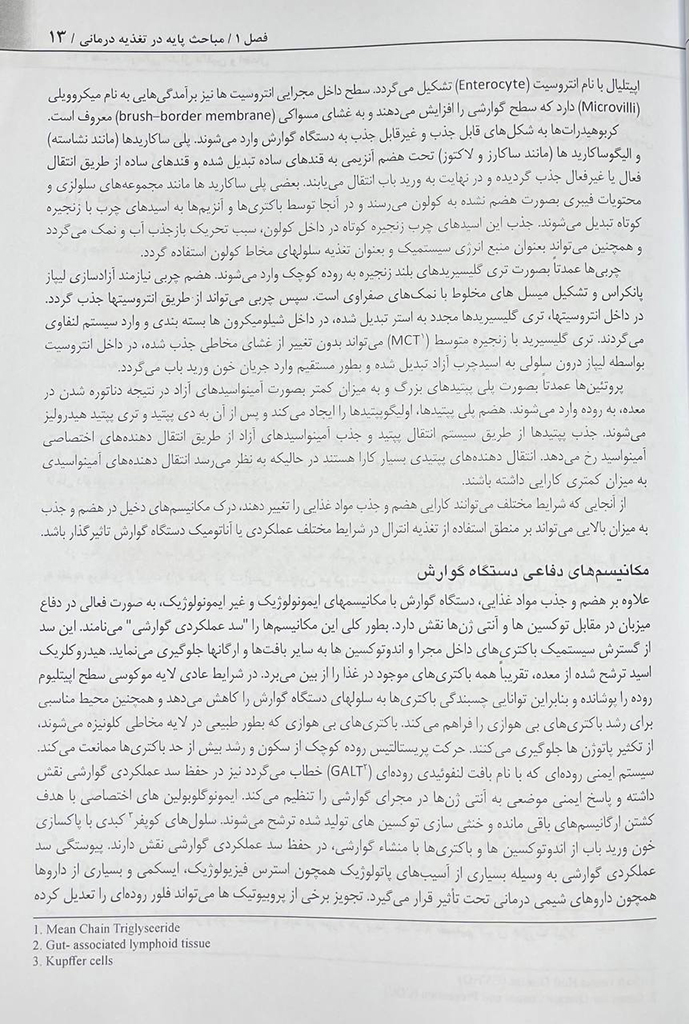 فصل ۱ / مباحث پایه در تغذیه درمانی / ۱۳
اپیتلیال با نام انتروسیت (Enterocyte) تشکیل می‌گردد. سطح داخل مجرایی انتروسیت ها نیز برآمدگی‌هایی به نام میکروویلی
(Microvilli) دارد که سطح گوارشی را افزایش می‌دهند و به غشای مسواکی (brush–border membrane) معروف است.
کربوهیدرات‌ها به شکل‌های قابل جذب و غیرقابل جذب به دستگاه گوارش وارد می‌شوند. پلی ساکاریدها (مانند نشاسته)
و الیگوساکارید ها (مانند ساکارز و لاکتوز) تحت هضم آنزیمی به قندهای ساده تبدیل شده و قندهای ساده از طریق انتقال
فعال یا غیرفعال جذب گردیده و در نهایت به ورید باب انتقال می‌یابند. بعضی پلی ساکارید ها مانند مجموعه‌های سلولزی و
محتویات فیبری بصورت هضم نشده به کولون می‌رسند و در آنجا توسط باکتری‌ها و آنزیم‌ها به اسیدهای چرب با زنجیره
کوتاه تبدیل می‌شوند. جذب این اسیدهای چرب زنجیره کوتاه در داخل کولون، سبب تحریک بازجذب آب و نمک می‌گردد
و همچنین می‌تواند بعنوان منبع انرژی سیستمیک و بعنوان تغذیه سلولهای مخاط کولون استفاده گردد.
چربی‌ها عمدتاً بصورت تری گلیسیریدهای بلند زنجیره به روده کوچک وارد می‌شوند. هضم چربی نیازمند آزادسازی لیپاز
پانکراس و تشکیل میسل های مخلوط با نمک‌های صفراوی است. سپس چربی می‌تواند از طریق انتروسیتها جذب گردد.
در داخل انتروسیتها، تری گلیسیریدها مجدد به استر تبدیل شده، در داخل شیلومیکرون ها بسته بندی و وارد سیستم لنفاوی
می‌گردند. تری گلیسیرید با زنجیره متوسط (MCT۱) می‌تواند بدون تغییر از غشای مخاطی جذب شده، در داخل انتروسیت
بواسطه لیپاز درون سلولی به اسیدچرب آزاد تبدیل شده و بطور مستقیم وارد جریان خون ورید باب می‌گردد.
پروتئین‌ها عمدتاً بصورت پلی پپتیدهای بزرگ و به میزان کمتر بصورت آمینواسیدهای آزاد در نتیجه دناتوره شدن در
معده، به روده وارد می‌شوند. هضم پلی پپتیدها، اولیگوپپتیدها را ایجاد می‌کند و پس از آن به دی پپتید و تری پپتید هیدرولیز
می‌شوند. جذب پپتیدها از طریق سیستم انتقال پپتید و جذب آمینواسیدهای آزاد از طریق انتقال دهنده‌های اختصاصی
آمینواسید رخ می‌دهد. انتقال دهنده‌های پپتیدی بسیار کارا هستند در حالیکه به نظر می‌رسد انتقال دهنده‌های آمینواسیدی
به میزان کمتری کارایی داشته باشند.
از آنجایی که شرایط مختلف می‌توانند کارایی هضم و جذب مواد غذایی را تغییر دهند، درک مکانیسم‌های دخیل در هضم و جذب
به میزان بالایی می‌تواند بر منطق استفاده از تغذیه انترال در شرایط مختلف عملکردی یا آناتومیک دستگاه گوارش تاثیرگذار باشد.
مکانیسم‌های دفاعی دستگاه گوارش
علاوه بر هضم و جذب مواد غذایی، دستگاه گوارش با مکانیسمهای ایمونولوژیک و غیر ایمونولوژیک، به صورت فعالی در دفاع
میزبان در مقابل توکسین ها و آنتی ژن‌ها نقش دارد. بطور کلی این مکانیسم‌ها را "سد عملکردی گوارشی" می‌نامند. این سد
از گسترش سیستمیک باکتری‌های داخل مجرا و اندوتوکسین ها به سایر بافت‌ها و ارگانها جلوگیری می‌نماید. هیدروکلریک
اسید ترشح شده از معده، تقریباً همه باکتری‌های موجود در غذا را از بین می‌برد. در شرایط عادی لایه موکوسی سطح اپیتلیوم
روده را پوشانده و بنابراین توانایی چسبندگی باکتری‌ها به سلولهای دستگاه گوارش را کاهش می‌دهد و همچنین محیط مناسبی
برای رشد باکتری‌های بی هوازی را فراهم می‌کند. باکتری‌های بی هوازی که بطور طبیعی در لایه مخاطی کلونیزه می‌شوند،
از تکثیر پاتوژن ها جلوگیری می‌کنند. حرکت پریستالتیس روده کوچک از سکون و رشد بیش از حد باکتری‌ها ممانعت می‌کند.
سیستم ایمنی روده‌ای که با نام بافت لنفوئیدی روده‌ای (GALT۲) خطاب می‌گردد نیز در حفظ سد عملکردی گوارشی نقش
داشته و پاسخ ایمنی موضعی به آنتی ژن‌ها در مجرای گوارشی را تنظیم می‌کند. ایمونوگلوبولین های اختصاصی با هدف
کشتن ارگانیسم‌های باقی مانده و خنثی سازی توکسین های تولید شده ترشح می‌شوند. سلول‌های کوپفر۳ کبدی با پاکسازی
خون ورید باب از اندوتوکسین ها و باکتری‌ها با منشاء گوارشی، در حفظ سد عملکردی گوارشی نقش دارند. پیوستگی سد
عملکردی گوارشی به وسیله بسیاری از آسیب‌های پاتولوژیک همچون استرس فیزیولوژیک، ایسکمی و بسیاری از داروها
همچون داروهای شیمی درمانی تحت تأثیر قرار می‌گیرد. تجویز برخی از پروبیوتیک ها می‌تواند فلور روده‌ای را تعدیل کرده
1. Mean Chain Triglysceride
2. Gut- associated lymphoid tissue
3. Kupffer cells